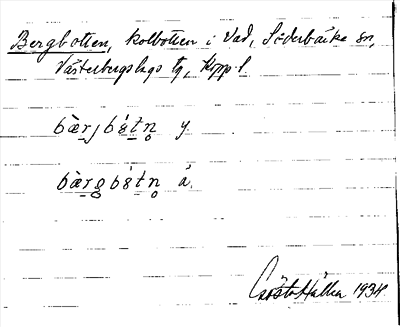 Bergbotten, kolbotten i Vad, Söderbärke sn,
Västerbergslags tg, Kopp l.
bæ̀rjbótn̥ y.
bæ̀rg̥bótn̥ ä.
Gösta Hallen 1934.